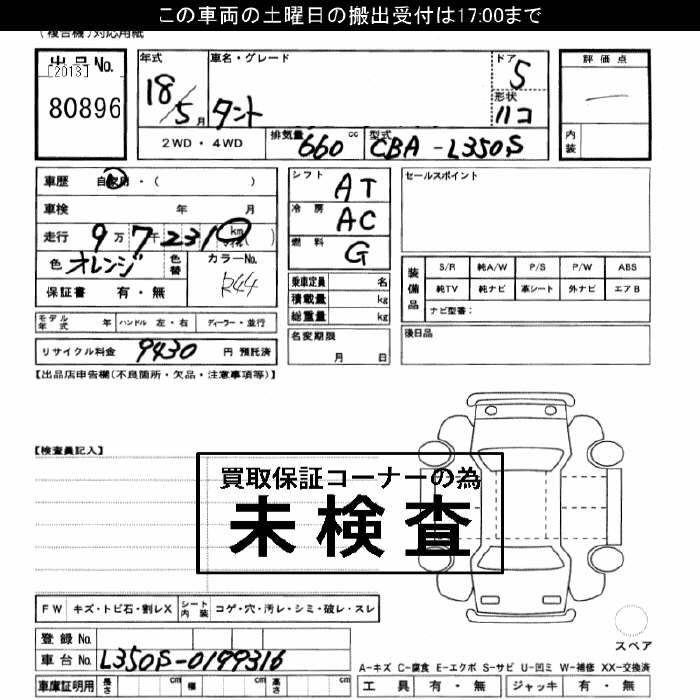 この車両の土曜日の搬出受付は17:00まで
(複合機)対応用紙
出品No.
[2013]
80896
年式
18/5月
車名・グレード
タント
ドア
5
形状
ハコ
評価点
—
内装
2WD・4WD
排気量
660 cc
型式
CBA-L350S
車歴 自家用・( )
車検 年 月
走行 9万7千231 km マイル( )
色 オレンジ
色替
カラーNo.
R44
保証書 有・無
シフト AT
冷房 AC
燃料 G
乗車定員 名
積載量 kg
総重量 kg
セールスポイント
装備品
S/R 純A/W P/S P/W ABS
純TV 純ナビ 革シート 外ナビ エアB
ナビ型番:
モデル年式 年 ハンドル 左・右 ディーラー・並行
名変期限
月 日
後日品
リサイクル料金 9430 円 預託済
【出品店申告欄(不良箇所・欠品・注意事項等)】
【検査員記入】
買取保証コーナーの為
未検査
FW キズ・トビ石・割レX
シート内装 コゲ・穴・汚レ・シミ・破レ・スレ
登録No.
車台No. L350S-0199316
スペア
A-キズ C-腐食 E-エクボ S-サビ U-凹ミ W-補修 XX-交換済
車庫証明用 長さ cm 幅 cm 高さ cm
工具 有・無 ジャッキ 有・無